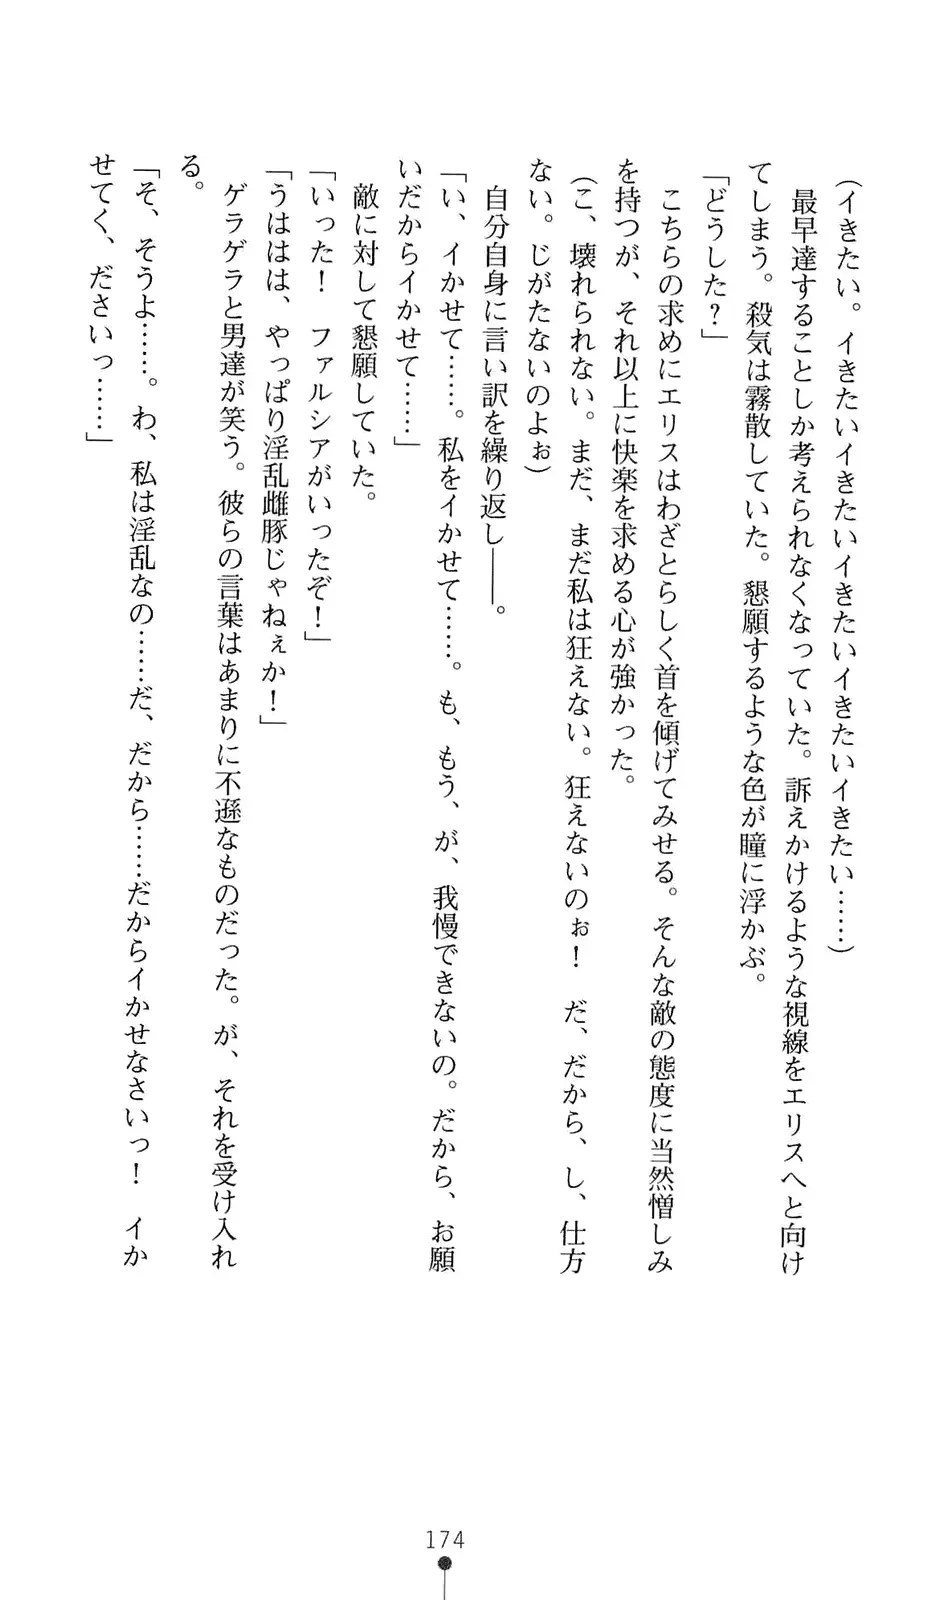 （イきたい。イきたいイきたいイきたいイきたいイきたい……）
　最早達することしか考えられなくなっていた。訴えかけるような視線をエリスへと向け
てしまう。殺気は霧散していた。懇願するような色が瞳に浮かぶ。
「どうした？」
　こちらの求めにエリスはわざとらしく首を傾げてみせる。そんな敵の態度に当然憎しみ
を持つが、それ以上に快楽を求める心が強かった。
（こ、壊れられない。まだ、まだ私は狂えない。狂えないのぉ！　だ、だから、し、仕方
ない。じがたないのよぉ）
　自分自身に言い訳を繰り返し――。
「い、イかせて……。私をイかせて……。も、もう、が、我慢できないの。だから、お願
いだからイかせて……」
　敵に対して懇願していた。
「いった！　ファルシアがいったぞ！」
「うははは、やっぱり淫乱雌豚じゃねぇか！」
　ゲラゲラと男達が笑う。彼らの言葉はあまりに不遜なものだった。が、それを受け入れ
る。
「そ、そうよ……。わ、私は淫乱なの……だ、だから……だからイかせなさいっ！　イか
せてく、ださいっ……」
174